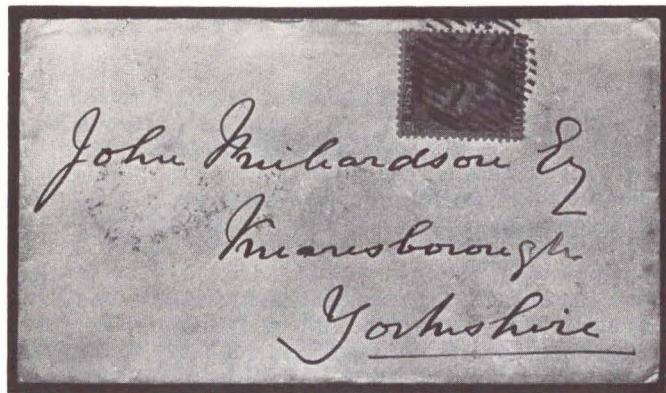 John Richardson Esq
Knaresborough
Yorkshire